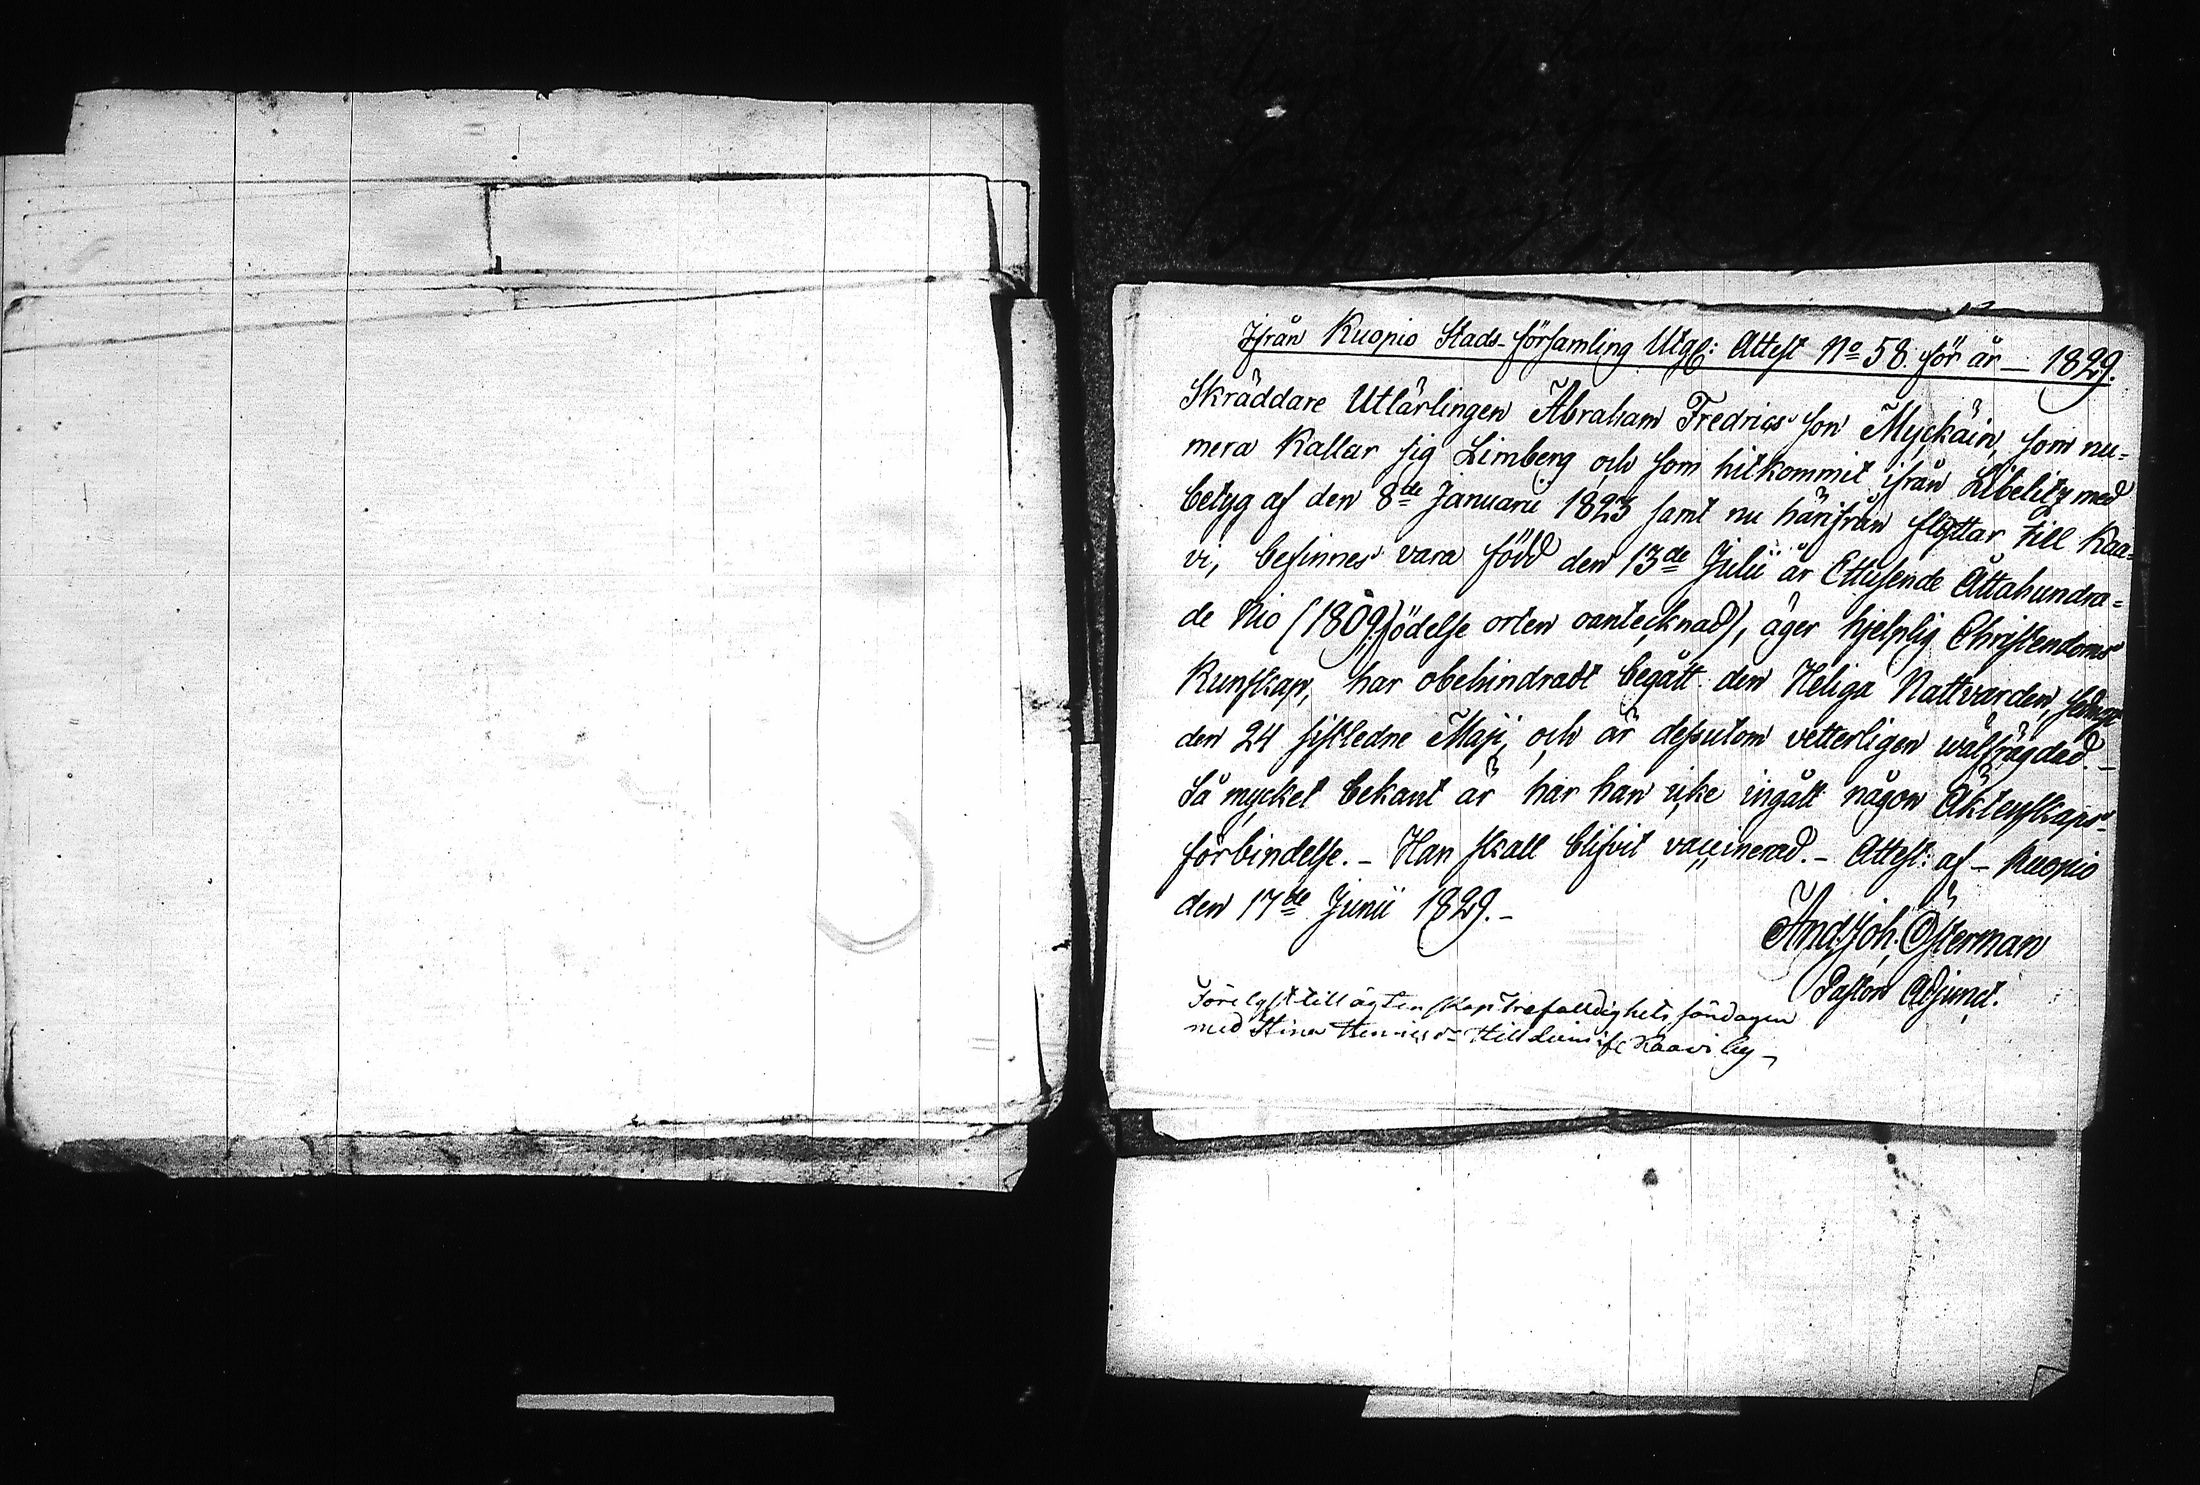 Ifrån Kuopio Stads-församling Utgif: Attest No 58. för år — 1829.
Skräddare Utlärlingen Abraham Fredrics son Myckäin, som nu-
mera kallar sig Limberg och som hitkommit ifrån Libelitz med
betyg af den 8de Januarii 1823 samt nu härifrån flyttar till Kaa-
vi, befinnes vara född den 13de Julii år Ettusende Åttahundra-
de Nio (1809.) födelse orten oantecknad), äger hjelplig Christendoms
Kunskap, har obehindradt begått den Heliga Nattvarden,
den 24 sistledne Maji, och är dessutom vetterligen wälfrägdad. —
Så mycket bekant är har han icke ingått någon Äktenskaps-
förbindelse. — Han skall blifvit vaccinerad. — Attest: af — Kuopio
den 17de Junii 1829. —
And. Joh. Österman
Pastors Adjunct.
Förelyst till ägtenskap Trefalldighets söndagen
med Stina if Kaavi by —